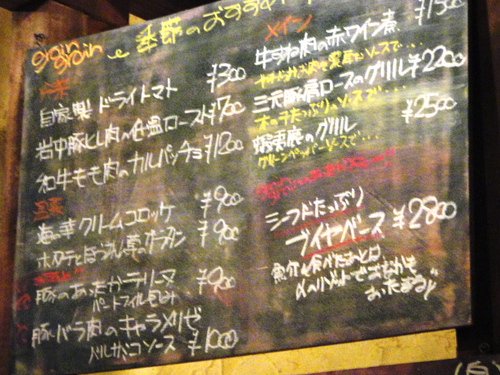 grain grain 季節のおすすめ
冷菜
自家製 ドライトマト ¥300
岩中豚ヒレ肉の低温ロースト ¥700
和牛モモ肉のカルパッチョ ¥1200
温菜
海の華クリームコロッケ ¥900
ホタテとほうれん草のグラタン ¥900
豚のあったかテリーヌ ¥900
パートフィル包み
豚バラ肉のキャラメリゼ
バルサミコソース ¥1000
メイン
牛ほほ肉の赤ワイン煮 ¥1500
ソースで…
三元豚肩ロースのグリル ¥2200
キノコたっぷりソースで…
蝦夷鹿のグリル ¥2500
グリーンペッパーソースで…
シーフードたっぷり
ブイヤベース ¥2800
魚介を食べたあとは
〆のリゾットでおなかも
あったまる